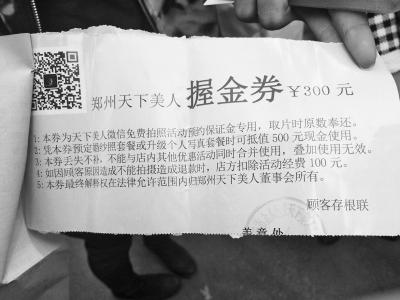 郑州天下美人 握金券 ￥300 元
1: 本券为天下美人微信免费拍照活动预约保证金专用，取片时原数奉还。
2: 凭本券预定婚纱照套餐或升级个人写真套餐时可抵值 500 元现金使用。
3: 本券丢失不补，不能与店内其他优惠活动同时合并使用，叠加使用无效。
4: 如因顾客原因造成不能拍摄造成退款时，店方扣除活动经费 100 元。
5: 本券最终解释权在法律允许范围内归郑州天下美人董事会所有。
顾客存根联
盖章处